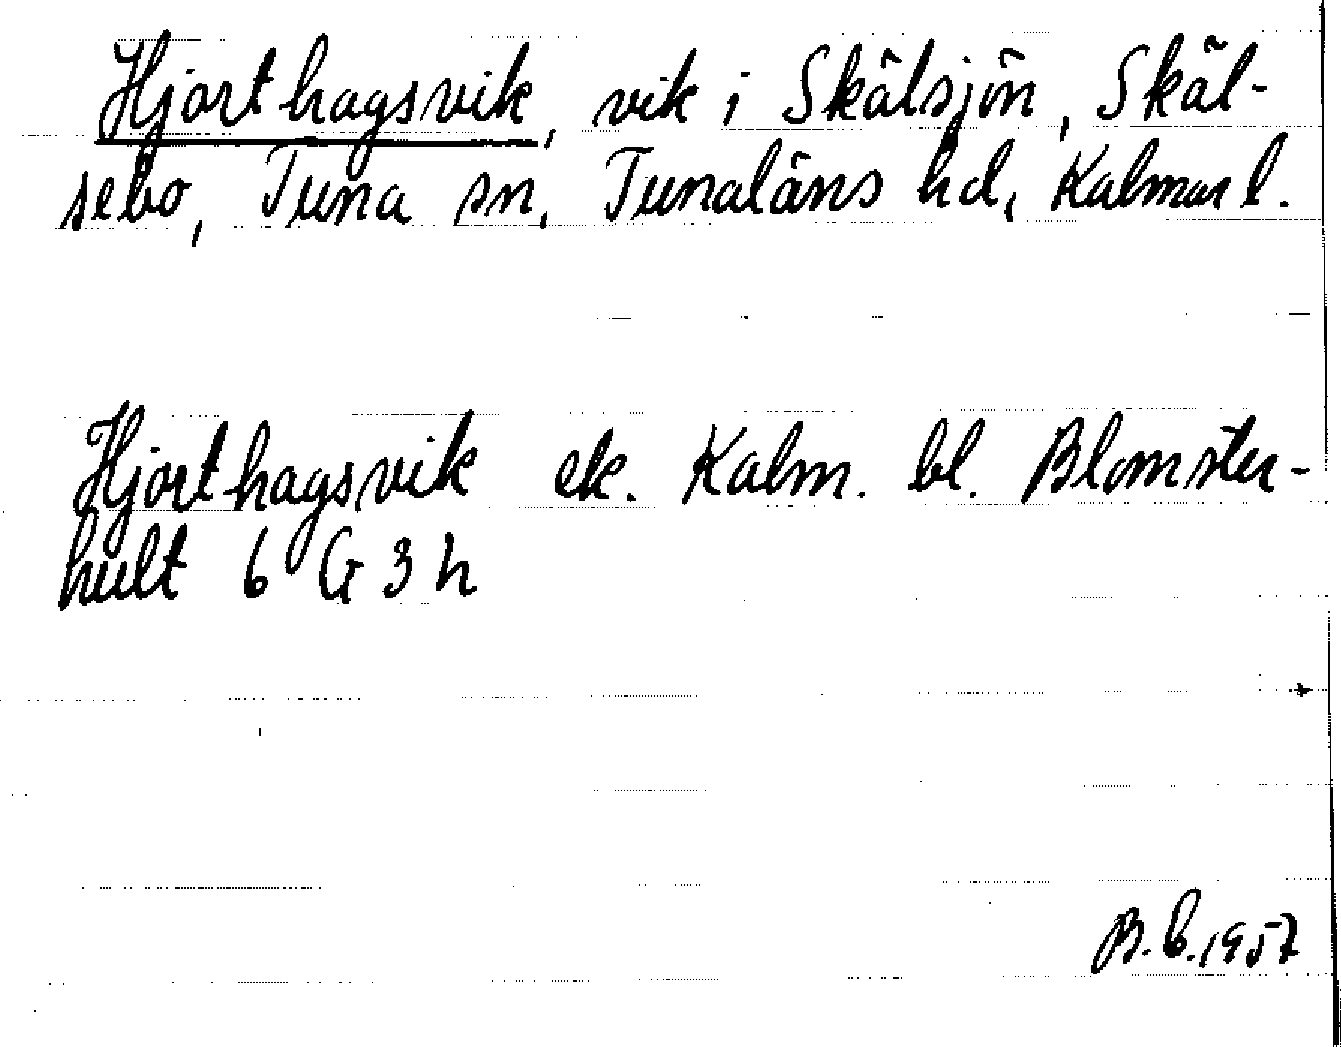 Hjorthagsvik, vik i Skälsjön, Skäl-
sebo, Tuna sn, Tunaläns hd, Kalmar l.
Hjorthagsvik ek. Kalm. bl. Blomster-
hult 6 G 3 h
B.E. 1957